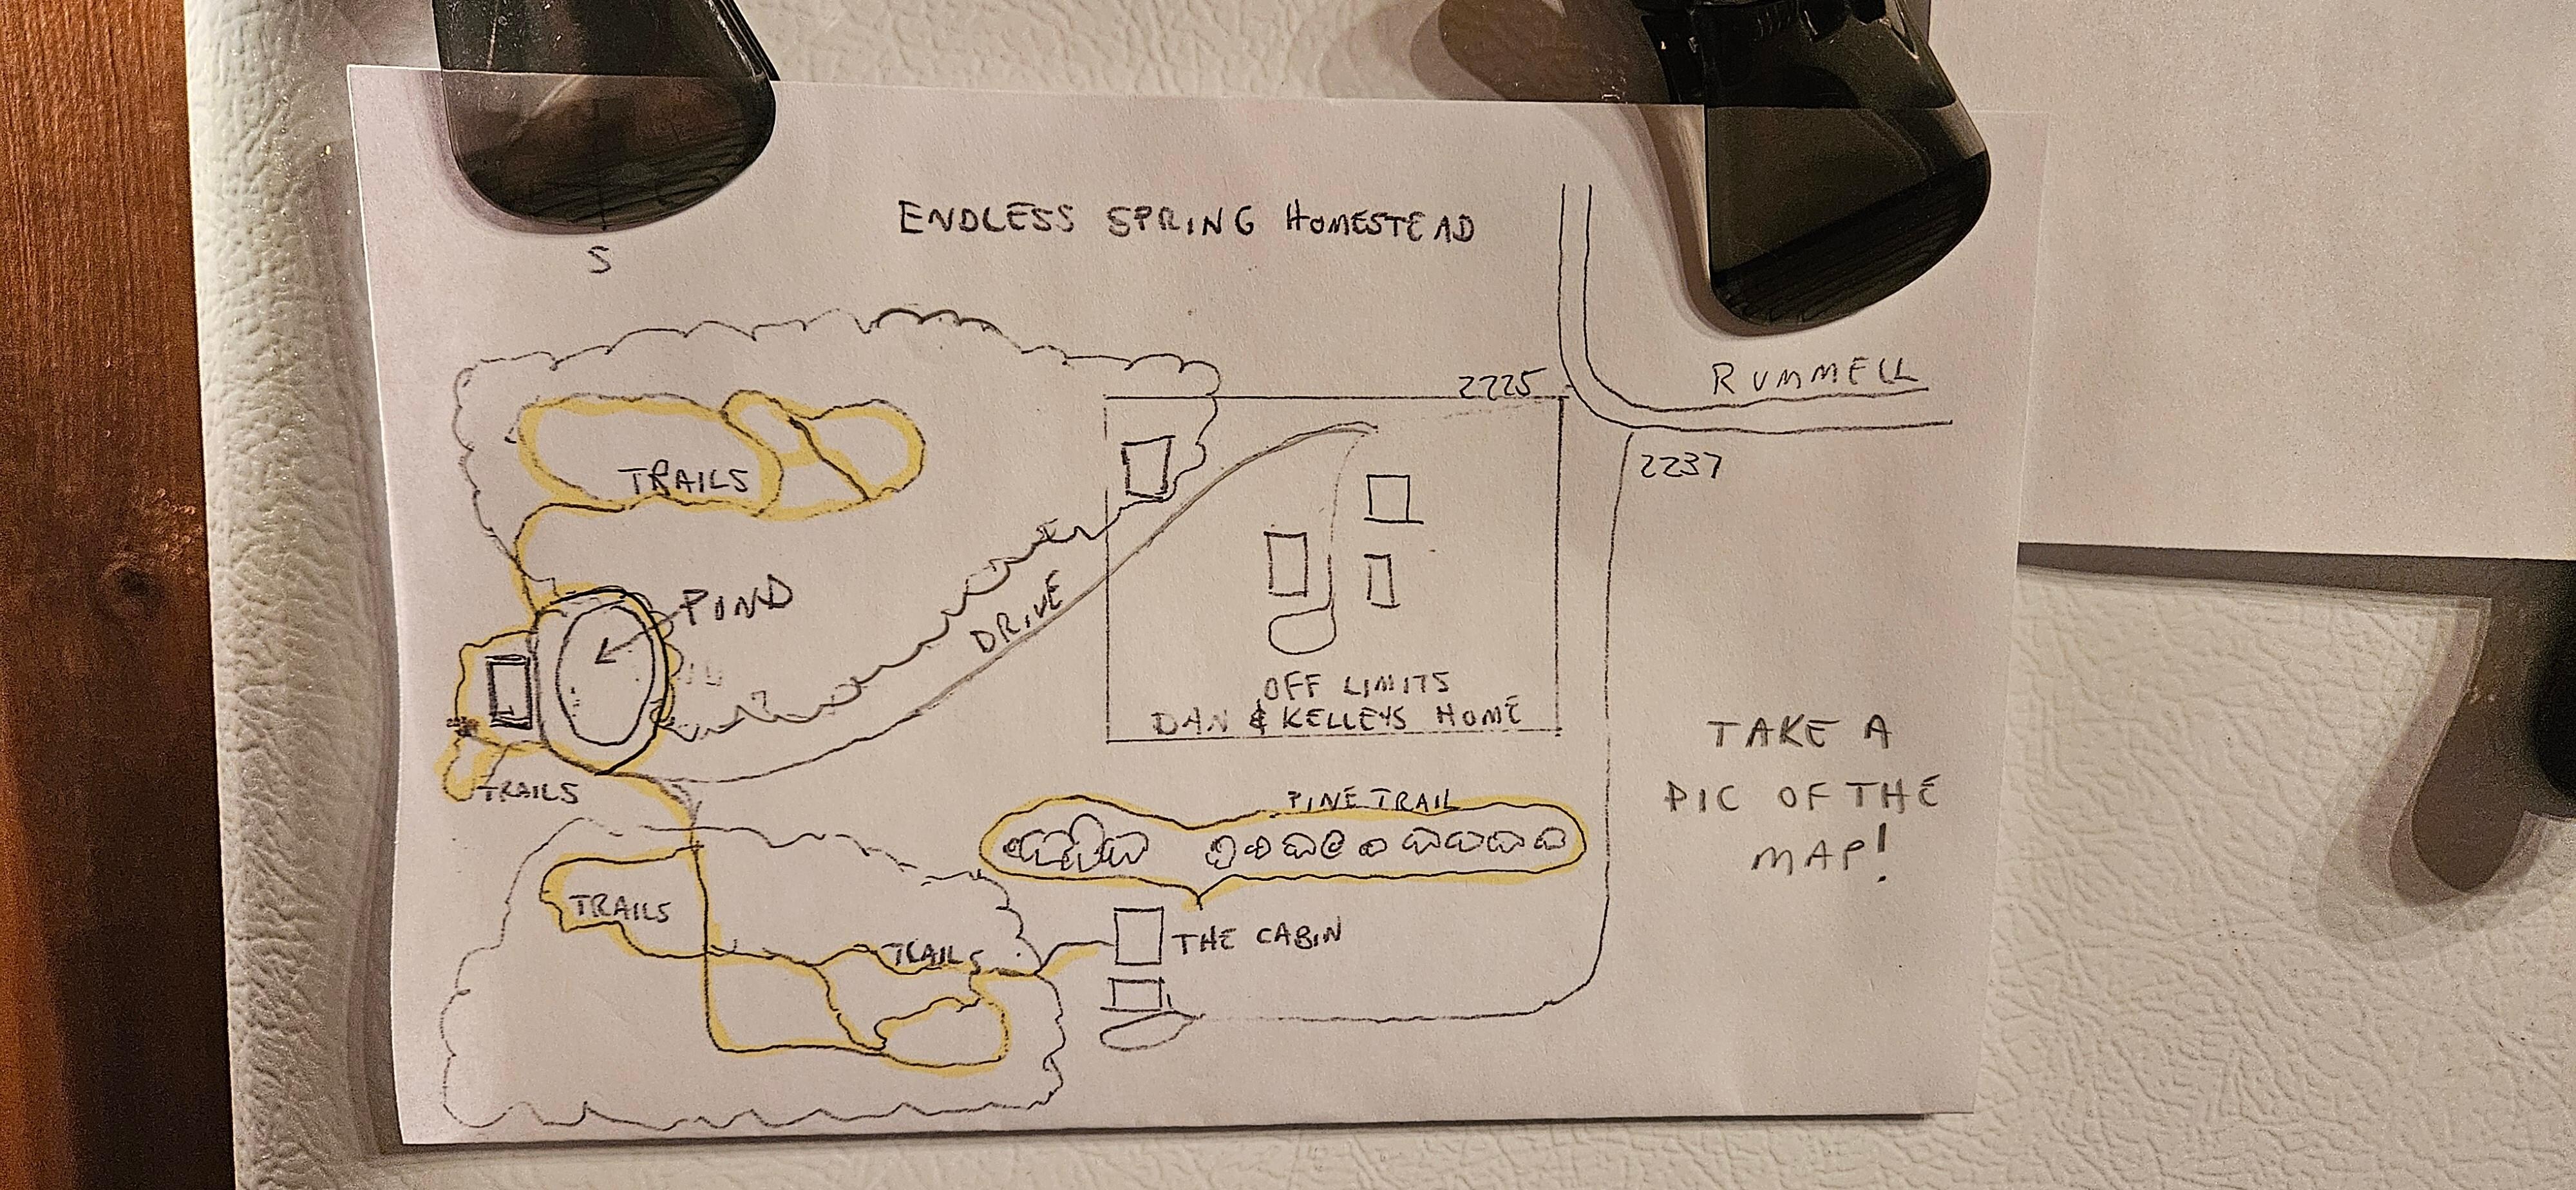 ENDLESS SPRING HOMESTEAD
S
2225
RUMMELL
2237
TRAILS
POND
DRIVE
OFF LIMITS
DAN & KELLEYS HOME
TAKE A
PIC OF THE
MAP!
TRAILS
PINE TRAIL
TRAILS
TRAILS
THE CABIN